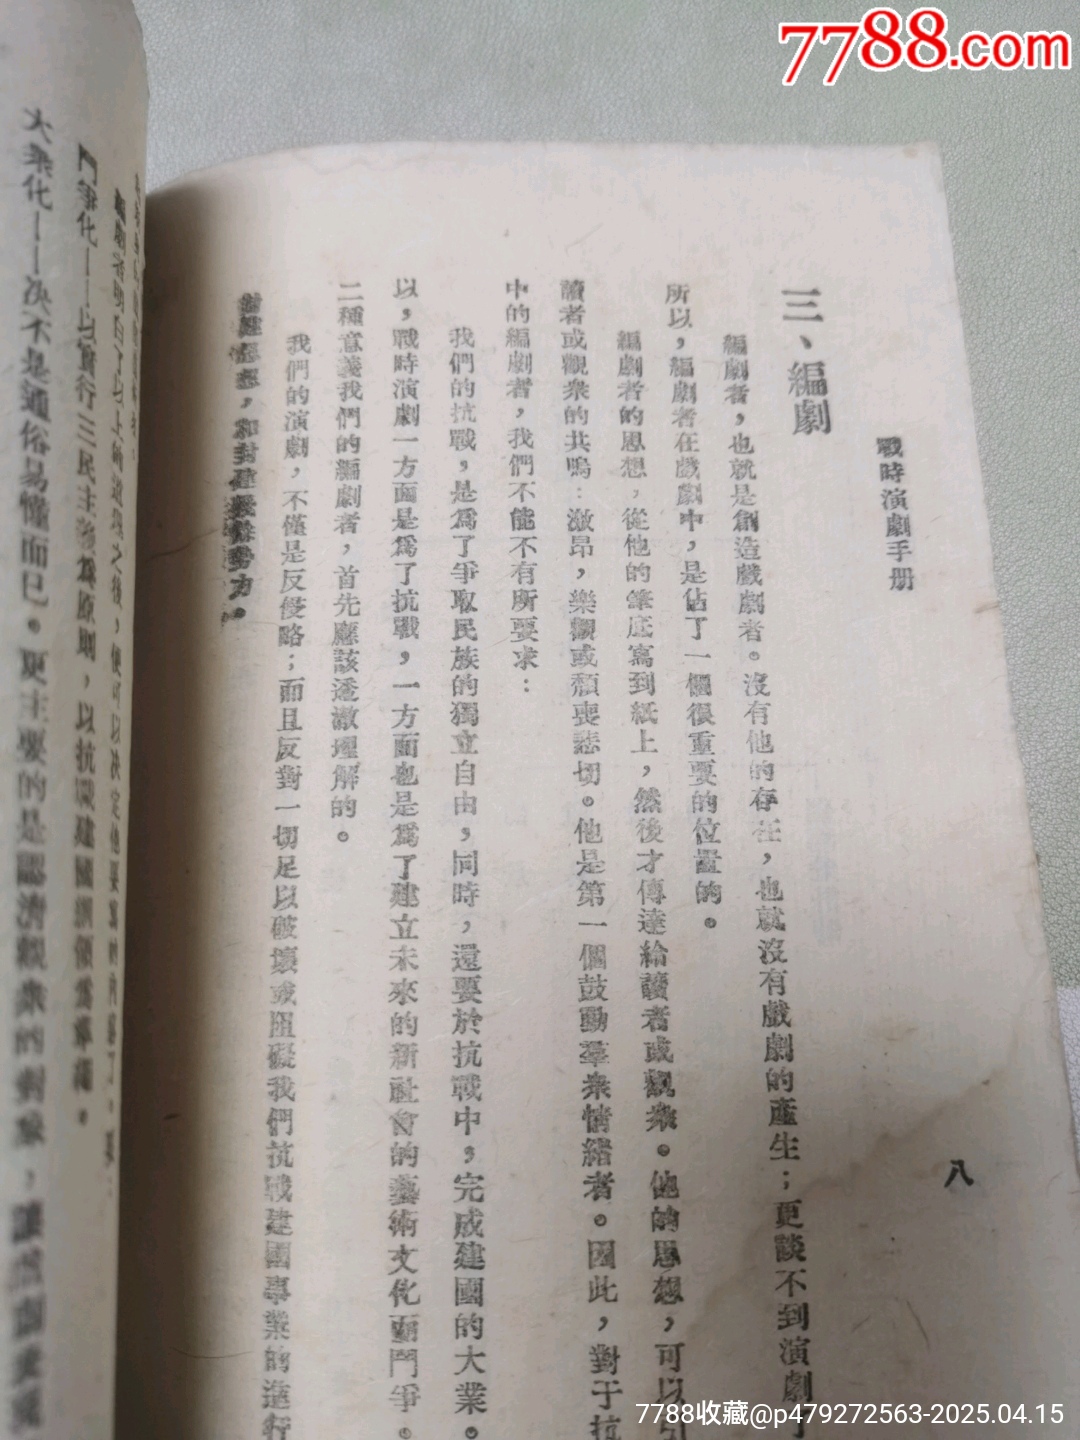 7788.com
戰時演劇手册
八
三、編劇
編劇者，也就是創造戲劇者。沒有他的存在，也就沒有戲劇的產生；更談不到演劇了
所以，編劇者在戲劇中，是佔了一個很重要的位置的。
編劇者的思想，從他的筆底寫到紙上，然後才傳達給讀者或觀衆。他的思想，可以引
讀者或觀衆的共鳴：激昂，樂觀或頹喪悲切。他是第一個鼓動羣衆情緒者。因此，對于抗
中的編劇者，我們不能不有所要求：
我們的抗戰，是爲了爭取民族的獨立自由，同時，還要於抗戰中，完成建國的大業。
以，戰時演劇一方面是爲了抗戰，一方面也是爲了建立未來的新社會的藝術文化而鬥爭。
二種意義我們的編劇者，首先應該透澈理解的。
我們的演劇，不僅是反侵略；而且反對一切足以破壞或阻礙我們抗戰建國事業的進行
封建思想，和封建殘餘勢力。
編劇者明白了以上的道理之後，便可以決定他要寫的內容了。
鬥爭化——以實行三民主義爲原則，以抗戰建國綱領爲準繩。
大衆化——決不是通俗易懂而已。更主要的是認清觀衆的對象，
7788收藏@p479272563-2025.04.15